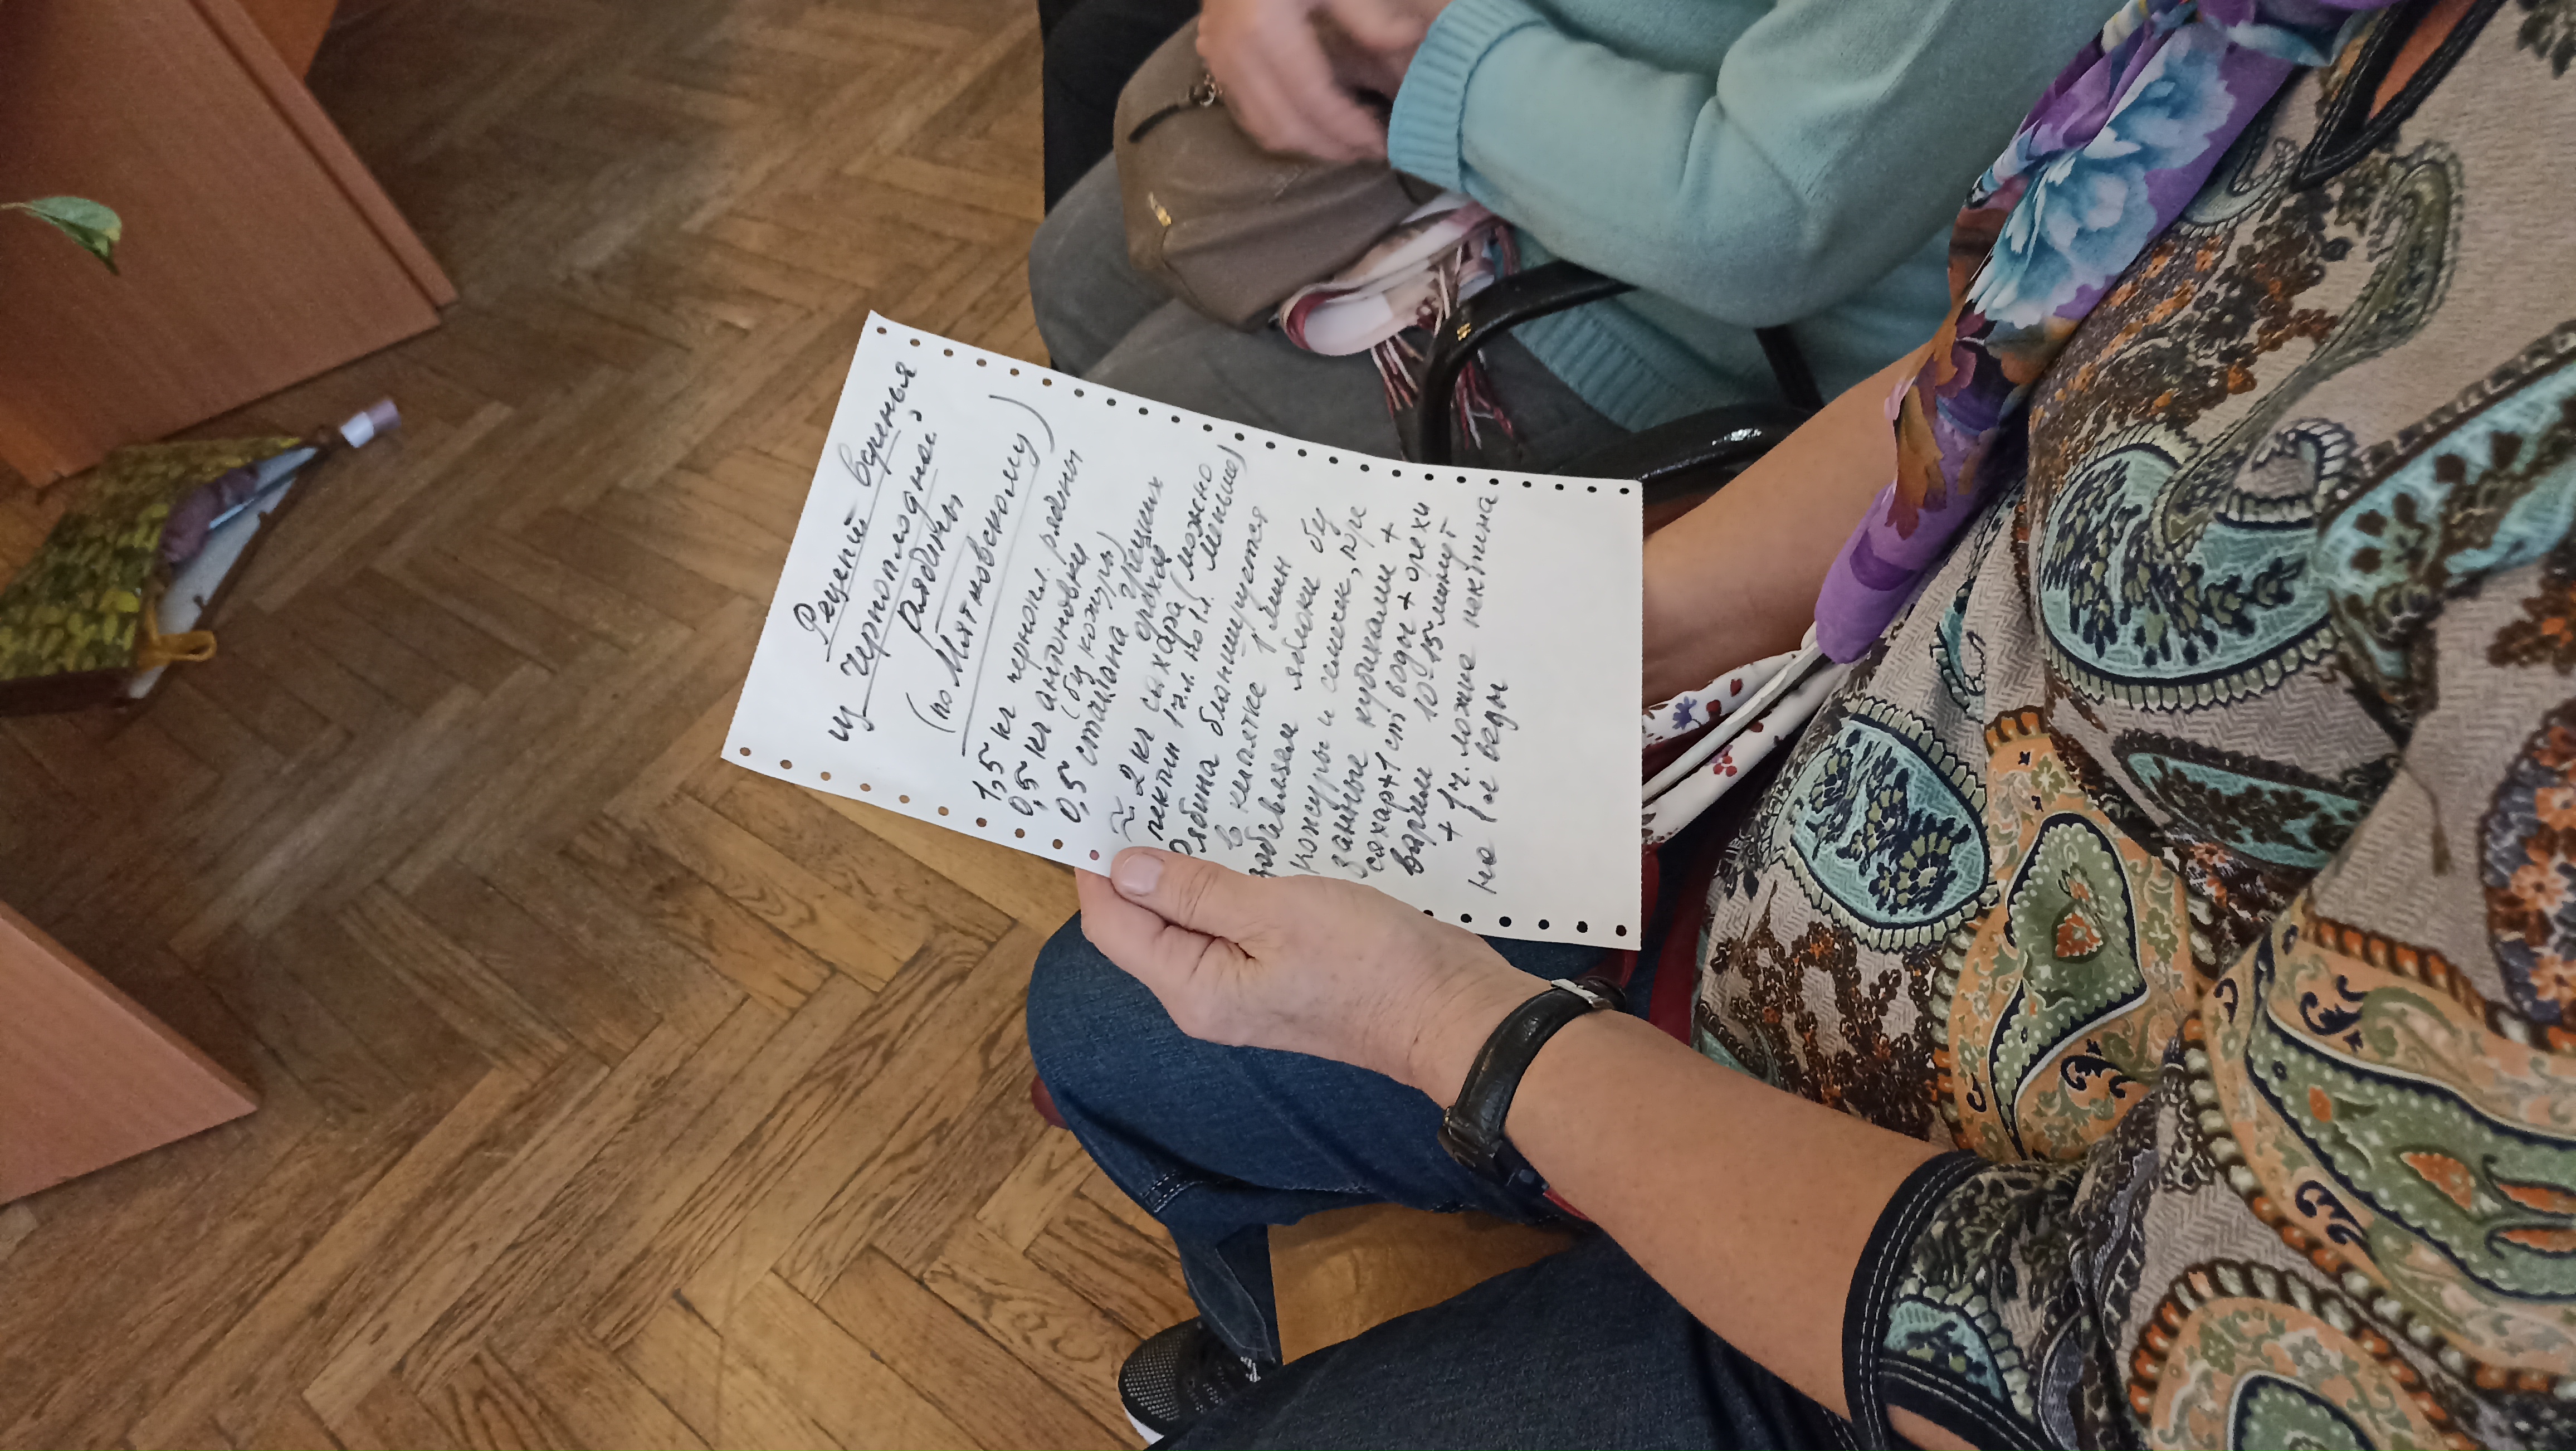 Рецепт варенья
из черноплодной
рябины
(по Мятковскому)
1,5 кг чернопл. рябины
0,5 кг антоновки
(без кожуры)
0,5 стакана грецких
орехов
≈ 2 кг сахара (можно
пектин 1 ч.л. по 1 л. меньше)
Рябина бланшируется
в кипятке 1 мин
добавляем яблоки без
кожуры и семечек, ре
занные кубиками +
сахар + 1 ст воды + орехи
варим 10-15 минут
+ 1 ч. ложке пектина
на 1 л воды